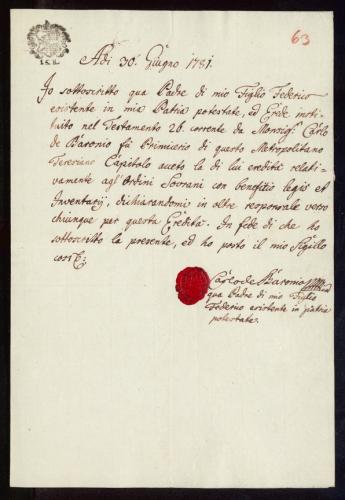 63
15. K.
Adi 30. Giugno 1781.
Io sottoscritto qua Padre di mio Figlio Federico
esistente in mia Patria potestate, ed Erede insti-
tuito nel Testamento 26. corrente da Monsig.r Carlo
de Baronio fu Primicerio di questo Metropolitano
Teresiano Capitolo aceto la di lui eredità relati-
vamente agl'Ordini Sovrani con beneficio legis et
Inventarij, dichiarandomi in oltre responsale verso
chiunque per questa Eredità. In fede di che ho
sottoscritto la presente, ed ho posto il mio Sigillo
Carlo de Baronio
qua Padre di mio Figlio
Federico existente in patria
potestate.